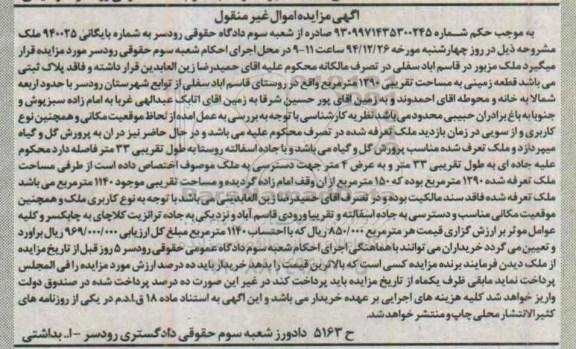 آگهی مزایده اموال غیر منقول
به موجب حکم شماره ۹۳۰۹۹۷۱۴۳۵۳۰۰۲۴۵ صادره از شعبه سوم دادگاه حقوقی رودسر به شماره بایگانی ۹۴۰۰۲۵ ملک
مشروحه ذیل در روز چهارشنبه مورخه ۹۴/۱۲/۲۶ ساعت ۱۱-۹ در محل اجرای احکام شعبه سوم حقوقی رودسر مورد مزایده قرار
میگیرد ملک مزبور در قاسم اباد سفلی در تصرف مالکانه محکوم علیه اقای حمیدرضا زین العابدین قرار داشته و فاقد پلاک ثبتی
می باشد قطعه زمینی به مساحت تقریبی ۱۲۹۰ مترمربع واقع در روستای قاسم اباد سفلی از توابع شهرستان رودسر با حدود اربعه
شمالا به خانه و محوطه اقای احمدوند و به زمین اقای پور حسین شرقا به زمین اقای اتابک عبدالهی غربا به امام زاده سبزپوش و
جنوبا به باغ برادران حبیبی محدود می باشد نظریه کارشناسی با توجه به بررسی به عمل امده از لحاظ موقعیت مکانی و همچنین نوع
کاربری و از سویی در زمان بازدید ملک تعرفه شده در تصرف محکوم علیه می باشد و در حال حاضر نیز در ان به پرورش گل و گیاه
میپردازد و ملک تعرفه شده مناسب پرورش گل و گیاه می باشد و با جاده اسفالته روستا به طول تقریبی ۳۳ متر فاصله دارد محکوم
علیه جاده ای به طول تقریبی ۳۳ متر و به عرض ۴ متر جهت دسترسی به ملک موصوف اختصاص داده است از طرفی مساحت
ملک تعرفه شده ۱۲۹۰ مترمربع بوده که ۱۵۰ مترمربع از ان وقف امام زاده گردیده و مساحت تقریبی موجود ۱۱۴۰ مترمربع می باشد
ملک تعرفه شده فاقد سند مالکیت بوده و در تصرف اقای حمیدرضا زین العابدینی می باشد با توجه به نوع کاربری ملک و همچنین
موقعیت مکانی مناسب و دسترسی به جاده اسفالته و تقریبا ورودی قاسم آباد و نزدیکی به جاده ترانزیت کلاچای به چابکسر و کلیه
عوامل موثر بر ارزش گزاری قیمت هر مترمربع ۸۵۰/۰۰۰ ریال که با احتساب ۱۱۴۰ مترمربع مبلغ کل ارزیابی ۹۶۹/۰۰۰/۰۰۰ ریال براورد
و تعیین می گردد خریداران می توانند با هماهنگی اجرای احکام شعبه سوم دادگاه عمومی حقوقی رودسر ۵ روز قبل از تاریخ مزایده
از ملک دیدن فرمایند برنده مزایده کسی است که بالاترین قیمت را بدهد خریدار باید ده درصد ارزش مورد مزایده را فی المجلس
پرداخت نماید مابقی ظرف یکماه از تاریخ مزایده باید پرداخت کند در غیر این صورت ده درصد پرداخت شده در صندوق دولت
واریز خواهد شد کلیه هزینه های اجرایی بر عهده خریدار می باشد و این آگهی به استناد ماده ۱۸ ق.ا.د.م در یکی از روزنامه های
کثیرالانتشار محلی چاپ و منتشر خواهد شد.
ح ۵۱۶۳ دادورز شعبه سوم حقوقی دادگستری رودسر -ا.. بداشتی